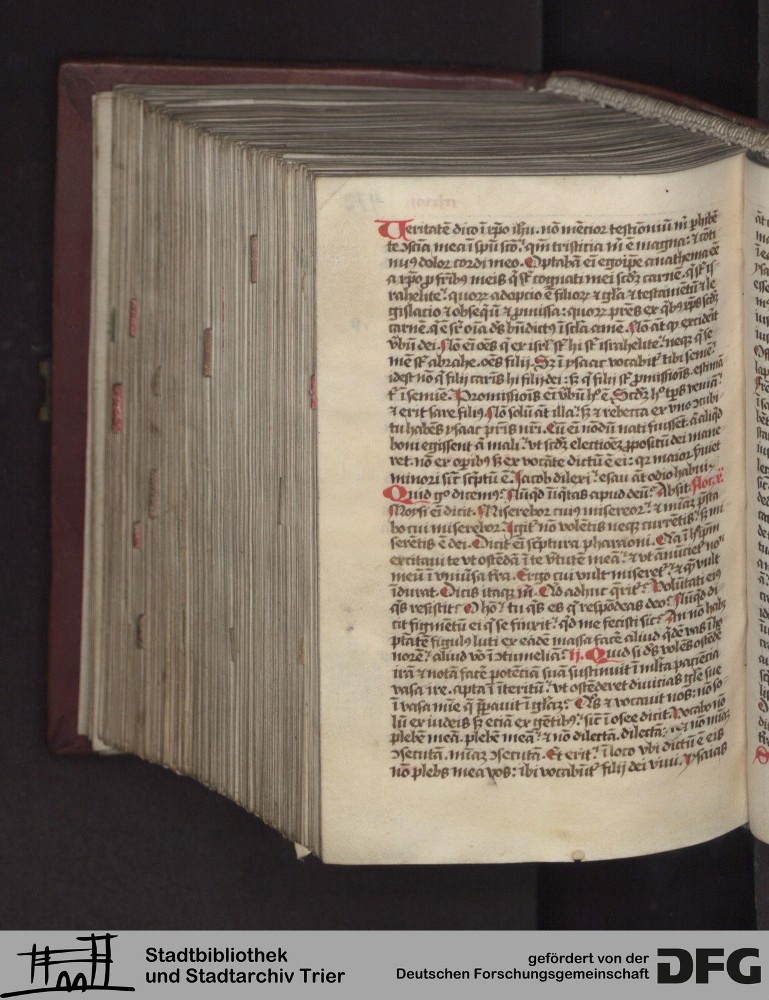 Veritatē dico ī xp̄o ih̄u. nō mētior testimoniū m̄ ꝑhibē
te ↄsciā mea ī sp̄u sc̄o: qm̄ tristicia m̄ ē magna: ⁊ cōti
nuꝰ dolor cordi meo. Optabā eī ego ip̄e anathema eē
a xp̄o ꝓ frīb⁹ meis q̄ st̄ cognati mei scd̄z carnē. q̄ st̄ is
rahelite: quoꝝ adoptio ē filioꝝ ⁊ gl̄a ⁊ testamētū ⁊ le
gislatio ⁊ obseq̄ū ⁊ ꝓmissa: quoꝝ pr̄es ex q̄b⁹ xp̄s scd̄z
carnē. q̄ ē sr̄ oīa d̄s bn̄dict⁹ ī scl̄a amē. Nō at̄ qp̱ exciderit
v̄bū dei. Nō eī oēs q̄ ex isrl̄ st̄ hi st̄ israhelite: neq̄ q̄ se
mē st̄ abrahe. oēs filij. Sꝫ ī ysaac vocabit̄ tibi semē:
idest nō q̄ filij carīs hi filij dei: sꝫ q̄ filij st̄ ꝓmissiōis. estimā
t̄ ī semīe. Promissiōis eī v̄bū h⁹ ē. Scd̄z h⁹ tp̄s veniā:
⁊ erit sare fili⁹. Nō solū at̄ illa: sꝫ ⁊ rebecca ex vno ↄcubi
tu habēs ysaac pr̄is nr̄i. Cū eī nōdū nati fuissēt. aut̄ aliqd
boni egissent aut̄ mali: vt scd̄z electioēꝫ ꝓpositū dei mane
ret. nō ex oꝑib⁹ sꝫ ex vocāte dictū ē ei: qꝛ maior s̄uiet
minori sic̄ sc̄ptū ē. Iacob dilexi: esau at̄ odio habui.
Quid g̊ dicem⁹: Nūqd īiq̄tas apud deū: Absit.
Moysi eī dicit. Miserebor cui⁹ misereor: ⁊ mīaꝫ p̄sta
bo cui miserebor. Igit̄ nō volētis neqꝫ currētis: sꝫ mi
serētis ē dei. Dicit eī sc̄ptura pharaoni. Qꝛ ī h̊ ip̄m
excitaui te vt ostēdā ī te v̄tutē meā: ⁊ vt ānūciet̄ no
mē meū ī vniūsa tr̄a. Ergo cui vult miseret̄: ⁊ q̄ vult
īdurat. Dicis itaqꝫ m̄. Qd adhuc q̄rit̄: Volūtati ei⁹
q̄s resistit: O hō: tu q̄s es q̄ respōdeas deo: Nūqd di
cit figmētū ei q̄ se finxit: qd me fecisti sic: An nō habꝫ
ptātē figul⁹ luti ex eadē massa facē aliud q̄dē vas ī ho
norē: aliud v̄o ī ↄtumeliā: ij. Quid si d̄s volēs ostēdē
irā ⁊ notā facē potēciā suā sustinuit ī mlta paciēcia
vasa ire. apta ī īteritū: vt ostēderet diuicias gl̄e sue
ī vasa mīe q̄ p̄ꝑauit ī gl̄aꝫ: Qs ⁊ vocauit nos: nō so
lū ex iudeis sꝫ eciā ex gētib⁹: sic̄ ī osee dicit. Vocabo nō
plebē meā. plebē meā: ⁊ nō dilectā. dilectā: ⁊ nō mīaꝫ
ↄsecutā. mīaꝫ ↄsecutā. Et erit: ī loco vbi dictū ē eis
nō plebs mea vos: ibi vocabūt̄ filij dei viui. ysaias
Stadtbibliothek
und Stadtarchiv Trier
gefördert von der
Deutschen Forschungsgemeinschaft
DFG